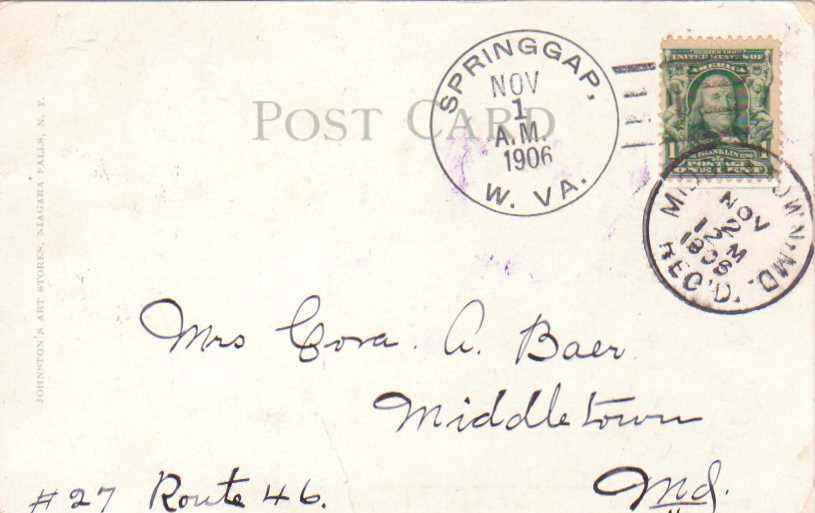 POST CARD
SPRINGGAP,
NOV
1
A.M.
1906
W. VA.
UNITED STATES OF
AMERICA
1 FRANKLIN 1
POSTAGE
ONE CENT
NOV
2
12 M
1906
REC'D.
MD.
JOHNSTON'S ART STORES, NIAGARA FALLS, N. Y.
Mrs Cora. A. Baer
Middletown
Md.
#27 Route 46.